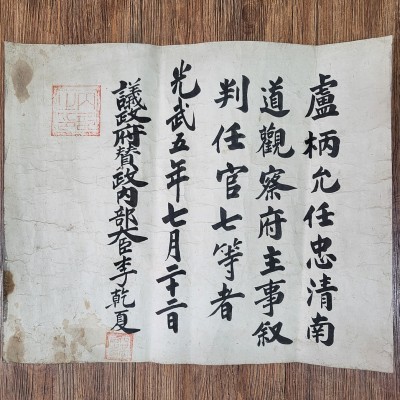 盧柄允任忠清南
道觀察府主事叙
判任官七等者
光武五年七月二十二日
議政府賛政內部大臣李乾夏